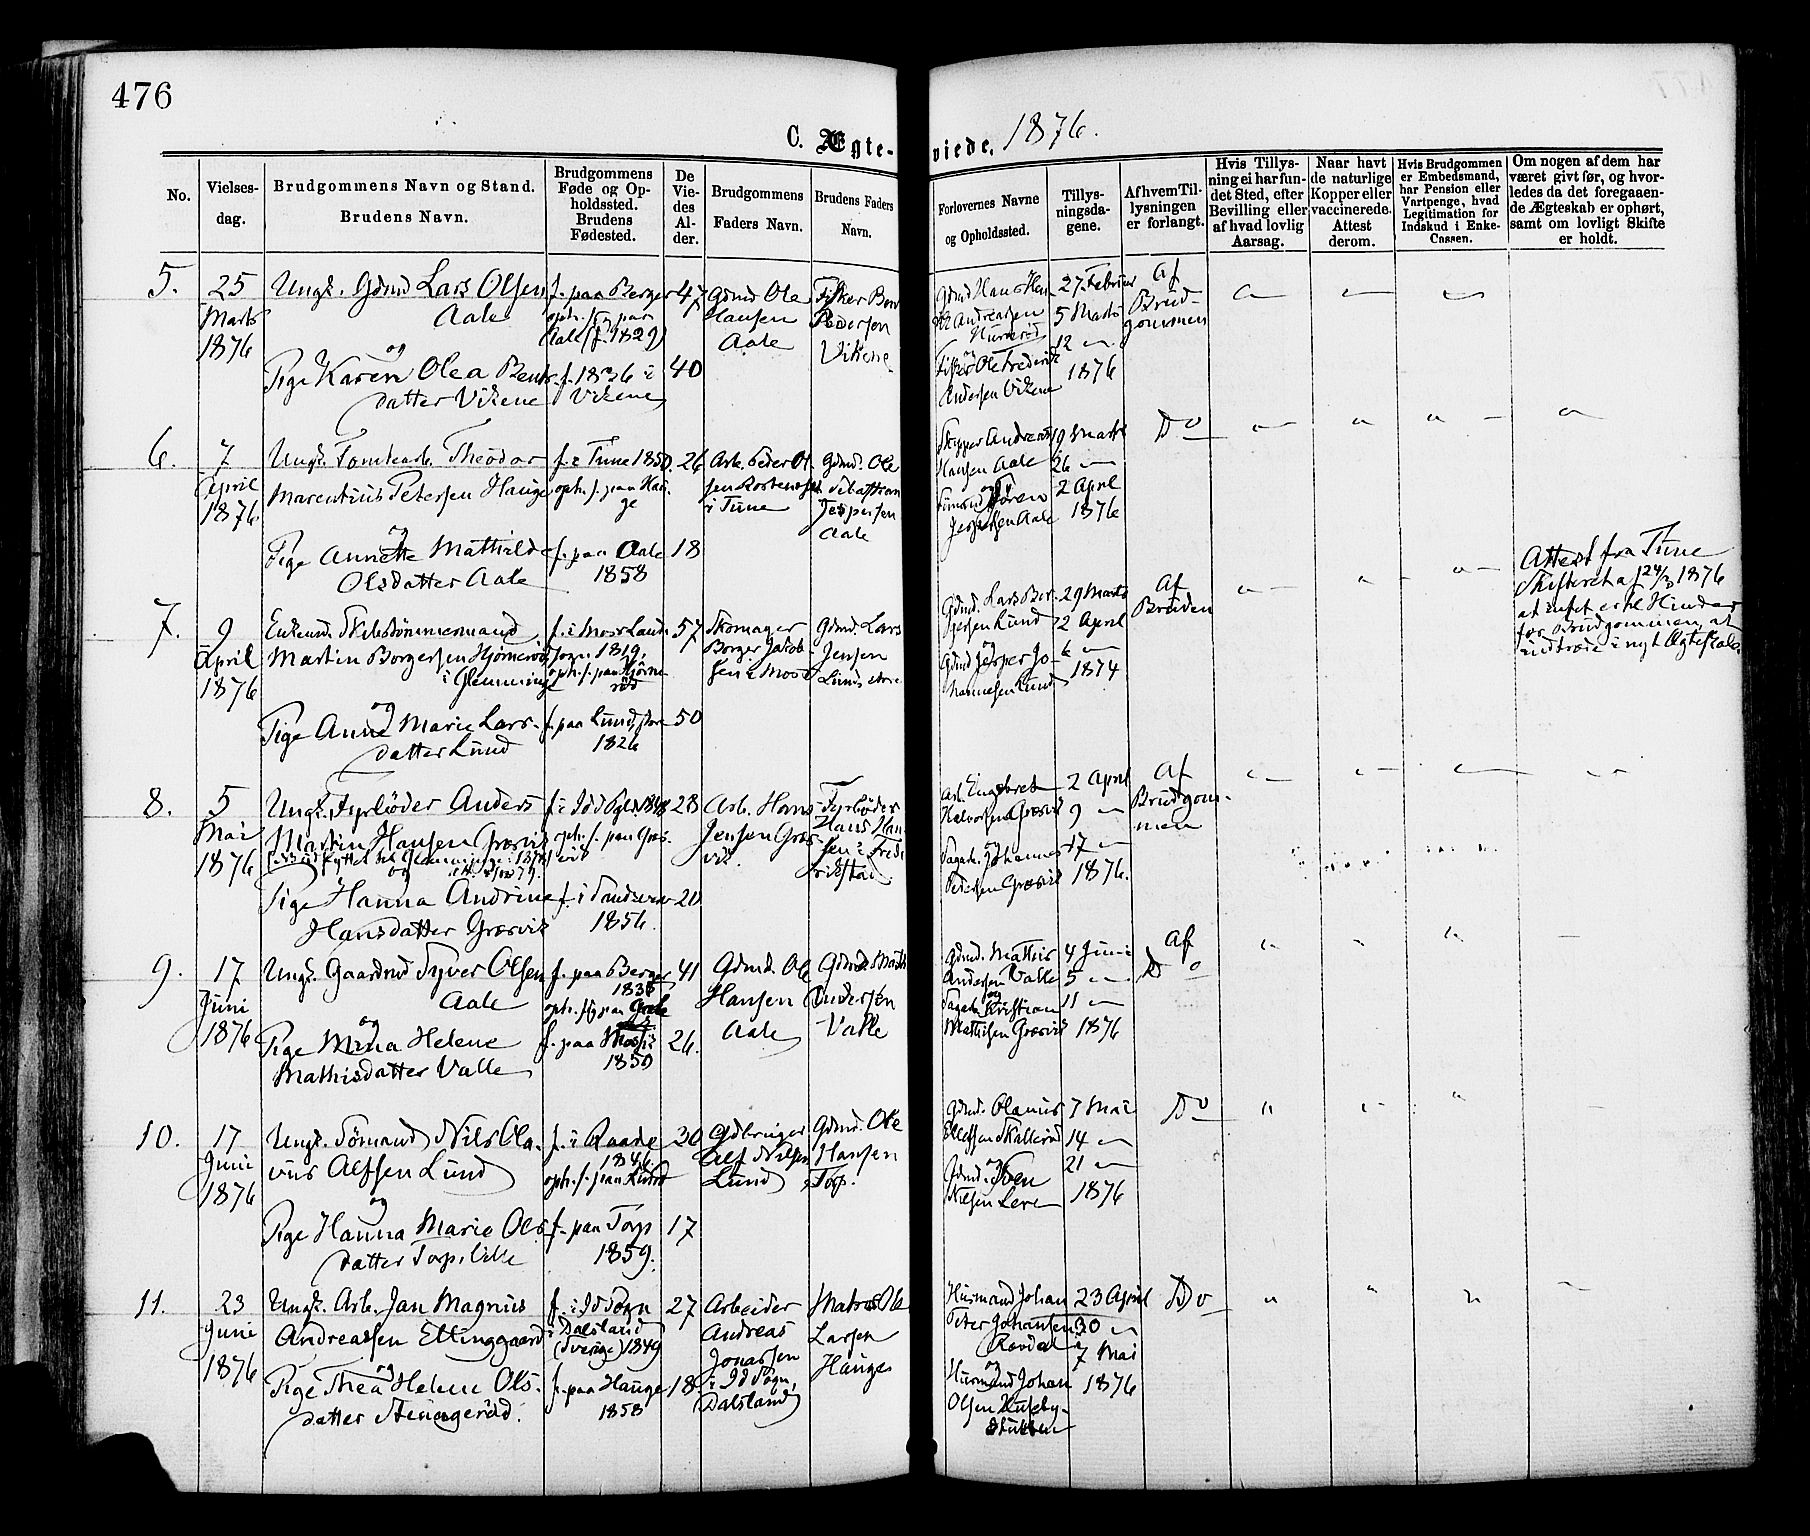 476
C. Ægteviede, 1876.
No.
Vielsesdag.
Brudgommens Navn og Stand.
Brudens Navn.
Brudgommens Føde og Opholdssted.
Brudens Fødested.
De Viedes Alder.
Brudgommens Faders Navn.
Brudens Faders Navn.
Forlovernes Navne og Opholdssted.
Tillysningsdagene.
Af hvem Tillysningen er forlangt.
Hvis Tillysning ei har fundet Sted, efter Bevilling eller af hvad lovlig Aarsag.
Naar havt de naturlige Kopper eller vaccinerede. Attest derom.
Hvis Brudgommen er Embedsmand, har Pension eller Vartpenge, hvad Legitimation for Indskud i Enke-Cassen.
Om nogen af dem har været givt før, og hvorledes da det foregaaende Ægteskab er ophørt, samt om lovligt Skifte er holdt.
5.
25
Marts
1876
Ungk. Gdmd Lars Olsen
Aale
og
Pige Karen Olea Bents-
datter Vikene
f. paa Berger
oph. s. paa
Aale (f. 1829)
f. 1836 i
Vikene
47
40
Gdmd Ole
Hansen
Aale
Fisker Bent
Pedersen
Vikene
Gdmd Hans Hen-
rik Andreassen
og
Fisker Ole Frederik
Andersen Vikene
27. Februar
5 Marts
12 —
1876
Af
Brud-
gommen
6.
7
April
1876
Ungk. Tomtearb. Theodor
Marentius Petersen Hauge
og
Pige Annette Mathilde
Olsdatter Aale
f. i Tune 1850.
oph. s. paa Hau-
ge
f. paa Aale
1858
26
18
Arb. Peder Ol-
sen
i Tune
Gdmd. Ole
Sebastian
Jespersen
Aale
Skipper Andreas
Hansen Aale
og
Sømand Søren
Jespersen Aale
19 Marts
26 —
2 April
1876
Do
7.
9
April
1876
Enkemd. Skibstømmermand
Martin Borgersen Hjørnerød
i Glemminge
og
Pige Anne Marie Lars-
datter Lund
f. i Moss Land-
sogn 1819,
oph. s. paa Hjørne-
rød
f. paa Lund store
1826
57
50
Skomager
Borger Jakob-
sen i Moss
Gdmd. Lars
Jensen
Lund store
Gdmd. Lars Bor-
gersen Lund
og
Gdmd Jesper Jo-
hannesen Lund
29 Marts
2 April
6 —
1874
Af
Bruden
Attest fra Tune
Skifteret af 24/3 1876
at intet er til Hinder
for Brudgommen at
indtræde i nyt Ægteskab.
8.
5
Mai
1876
Ungk. Fyrbøder Anders
Martin Hansen Græsvik
og
Pige Hanna Andrine
Hansdatter Græsvik
f. i Idd Pgld. 1848
oph. s. paa Græs-
vik
1856.
28
20
Arb. Hans
Jensen Græs-
vik.
Fyrbøder
Hans Han-
sen i Fred-
rikstad
Arb. Engebret
Halvorsen Græsvik
og
Sagarb. Johannes
Petersen Græsvik
2 April
9 —
17 —
1876.
Af
Brudgom-
men
9.
17
Juni
1876
Ungk. Gaardmd Syver Olsen
Aale
og
Pige Mina Helene
Mathisdatter Valle
f. paa Berger
1835
oph. s. paa
f. paa
1850
41
26.
Gdmd. Ole
Hansen
Aale
Gdmd. Mathis
Andersen
Valle
Gdmd. Mathis
Andersen Valle
og
Sagarb. Kristian
Mathisen Græsvik
4 Juni
5 —
11 —
1876
Af
Do
10.
17
Juni
1876
Ungk. Sømand Nils Ola-
vus Alfsen Lund
og
Pige Hanna Marie Ols-
datter Torp lille
f. i Raade
1846
oph. s. paa Lund
f. paa Torp
1859.
30
17
Gdbruger
Alf Nilsen
Lund
Gdmd. Ole
Hansen
Torp.
Gdmd. Olaus
Ellefsen Skallerød
og
Gdmd. Sven
Nilsen Lere
7 Mai
14 —
21 —
1876
Do
11.
23
Juni
1876
Ungk. Arb. Jan Magnus
Andreassen Ettinggaard
og
Pige Thea Helene Ols-
datter Stenngerød.
f. i Id Sogn
i Dalsland
(Sverige) 1849
f. paa Hauge
1858
27
18
Arbeider
Andreas
Jonassen
i Id Sogn,
Dalsland
Matros Ole
Larsen
Hauge
Husmand Johan
Peter Johansen
og
Husmand Johan
Olsen Huseby-
23 April
30 —
7 Mai
1876
Do